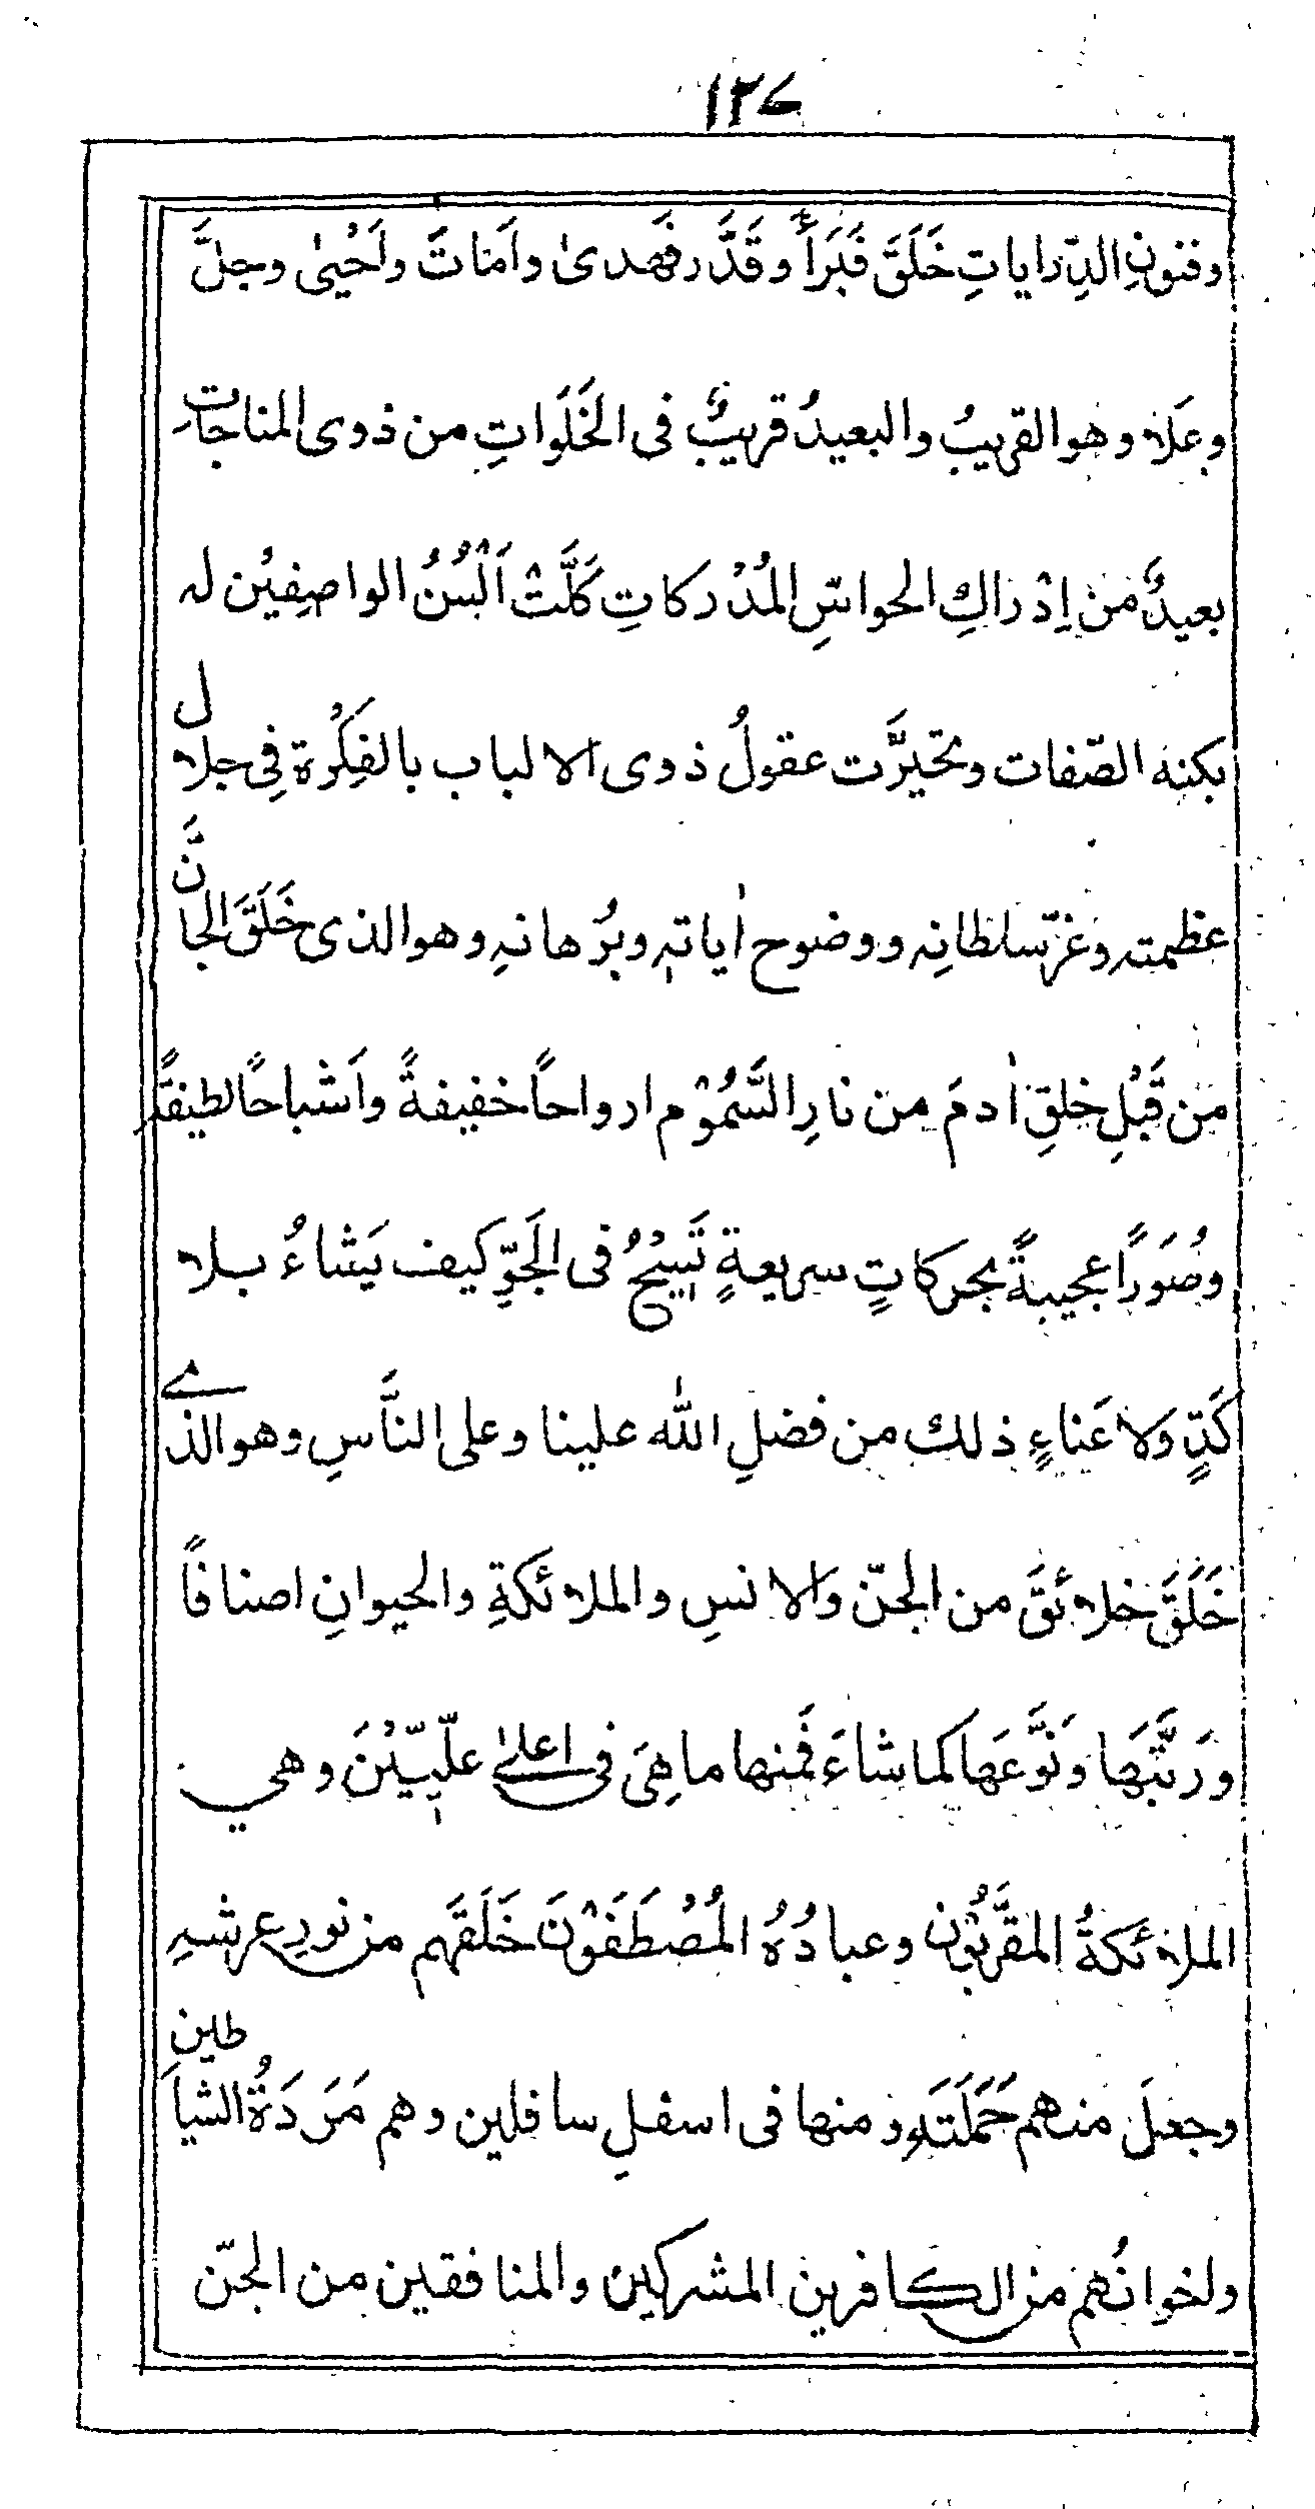 ١٣٧
وفنونِ الدِّراياتِ خَلَقَ فَبَرَأَ وقَدَّرَ فَهدىٰ واَمَاتَ واَحْيىٰ وجلَّ
وعَلا وهو القريبُ والبعيدُ قريبٌ فى الخَلَواتِ من ذوى المناجاتِ
بعيدٌ من اِدْراكِ الحواسِّ المُدْركاتِ كَلَّتْ اَلْسُنُ الواصِفِيْن له
بكنه الصّفات وتحيَّرت عقولُ ذوى الالباب بالفِكْرَة فِى جلال
عظمته وعزّ سلطانِه ووضوح اٰياته وبُرْهانهِ وهو الذى خَلَقَ الجانَّ
من قَبْلِ خلقِ اٰدمَ من نارِ السَّمُوْم ارواحاً خفيفةً واَشْباحاً لطيفةً
وصُوَراً عجيبةً بحركاتٍ سريعةٍ تَسِيْحُ فى الجَوِّ كيف يَشاءُ بلا
كَدٍّ ولا عَناءٍ ذلك من فضلِ الله علينا وعلى النَّاسِ وهو الذے
خَلَقَ خلائقَ من الجنّ والانسِ والملائكةِ والحيوانِ اصنافاً
ورَتَّبَها ونَوَّعَها كما شاءَ فَمنها ما هِىَ فى اعلىٰ علّيّيْنَ وهي
الملائكةُ المقرَّبُون وعبادُهُ المُصْطَفَوْنَ خَلَقَهم من نورِ عرشهِ
وجعلَ منهم حَمَلَتَه ومنها فى اسفلِ سافلين وهم مَرَدَةُ الشياطين
واخوانُهم من الكافرين المشركين والمنافقين من الجنّ